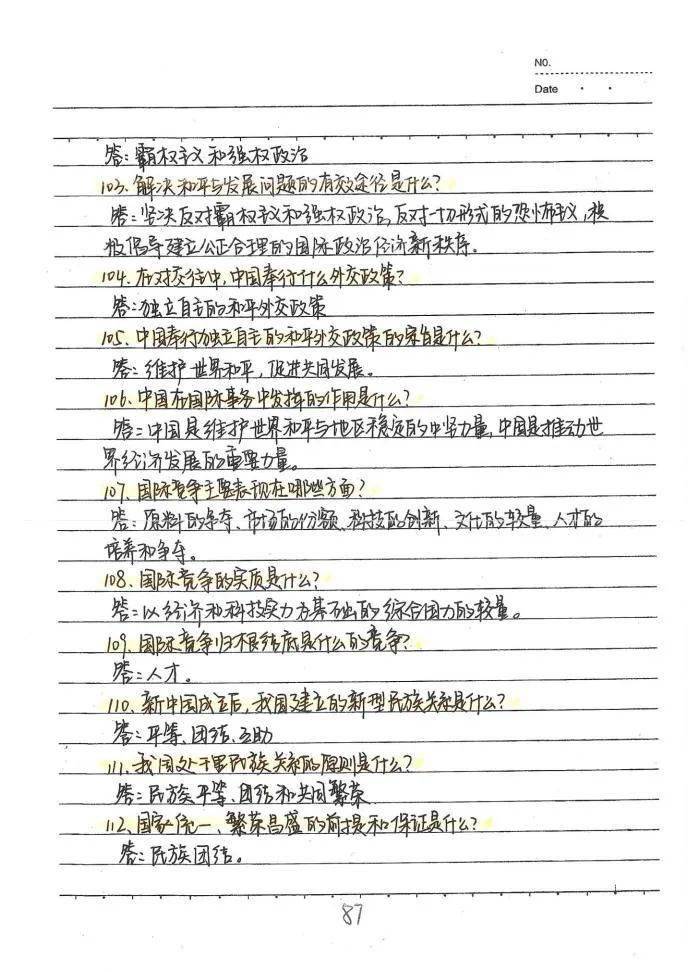 NO.
Date
答：霸权主义和强权政治
103、解决和平与发展问题的有效途径是什么？
答：坚决反对霸权主义和强权政治，反对一切形式的恐怖主义，积
极倡导建立公正合理的国际政治经济新秩序。
104、在对交往中，中国奉行什么外交政策？
答：独立自主的和平外交政策
105、中国奉行独立自主的和平外交政策的宗旨是什么？
答：维护世界和平，促进共同发展。
106、中国在国际事务中发挥的作用是什么？
答：中国是维护世界和平与地区稳定的中坚力量，中国是推动世
界经济发展的重要力量。
107、国际竞争主要表现在哪些方面？
答：原料的争夺、市场的份额、科技的创新、文化的较量、人才的
培养和争夺。
108、国际竞争的实质是什么？
答：以经济和科技实力为基础的综合国力的较量。
109、国际竞争归根结底是什么的竞争？
答：人才。
110、新中国成立后，我国建立的新型民族关系是什么？
答：平等、团结、互助
111、我国处理民族关系的原则是什么？
答：民族平等、团结和共同繁荣
112、国家统一、繁荣昌盛的前提和保证是什么？
答：民族团结。
87